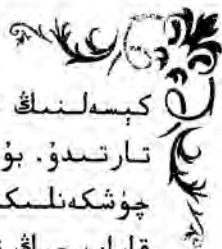 كېسەلنىڭ
تارتىدۇ. بۇ
چۈشكەنلىك